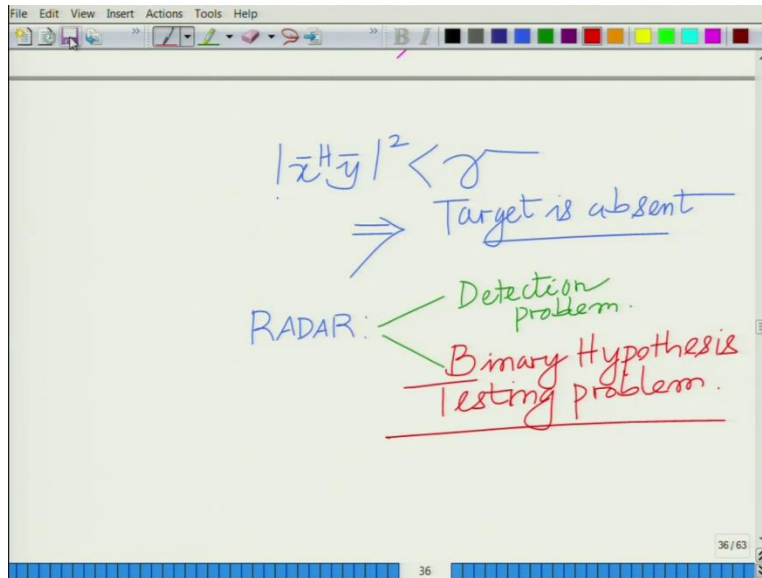 File Edit View Insert Actions Tools Help
B I
|x̄ᴴȳ|² < γ
⇒ Target is absent
RADAR:
Detection
problem.
Binary Hypothesis
Testing problem.
36/63
36